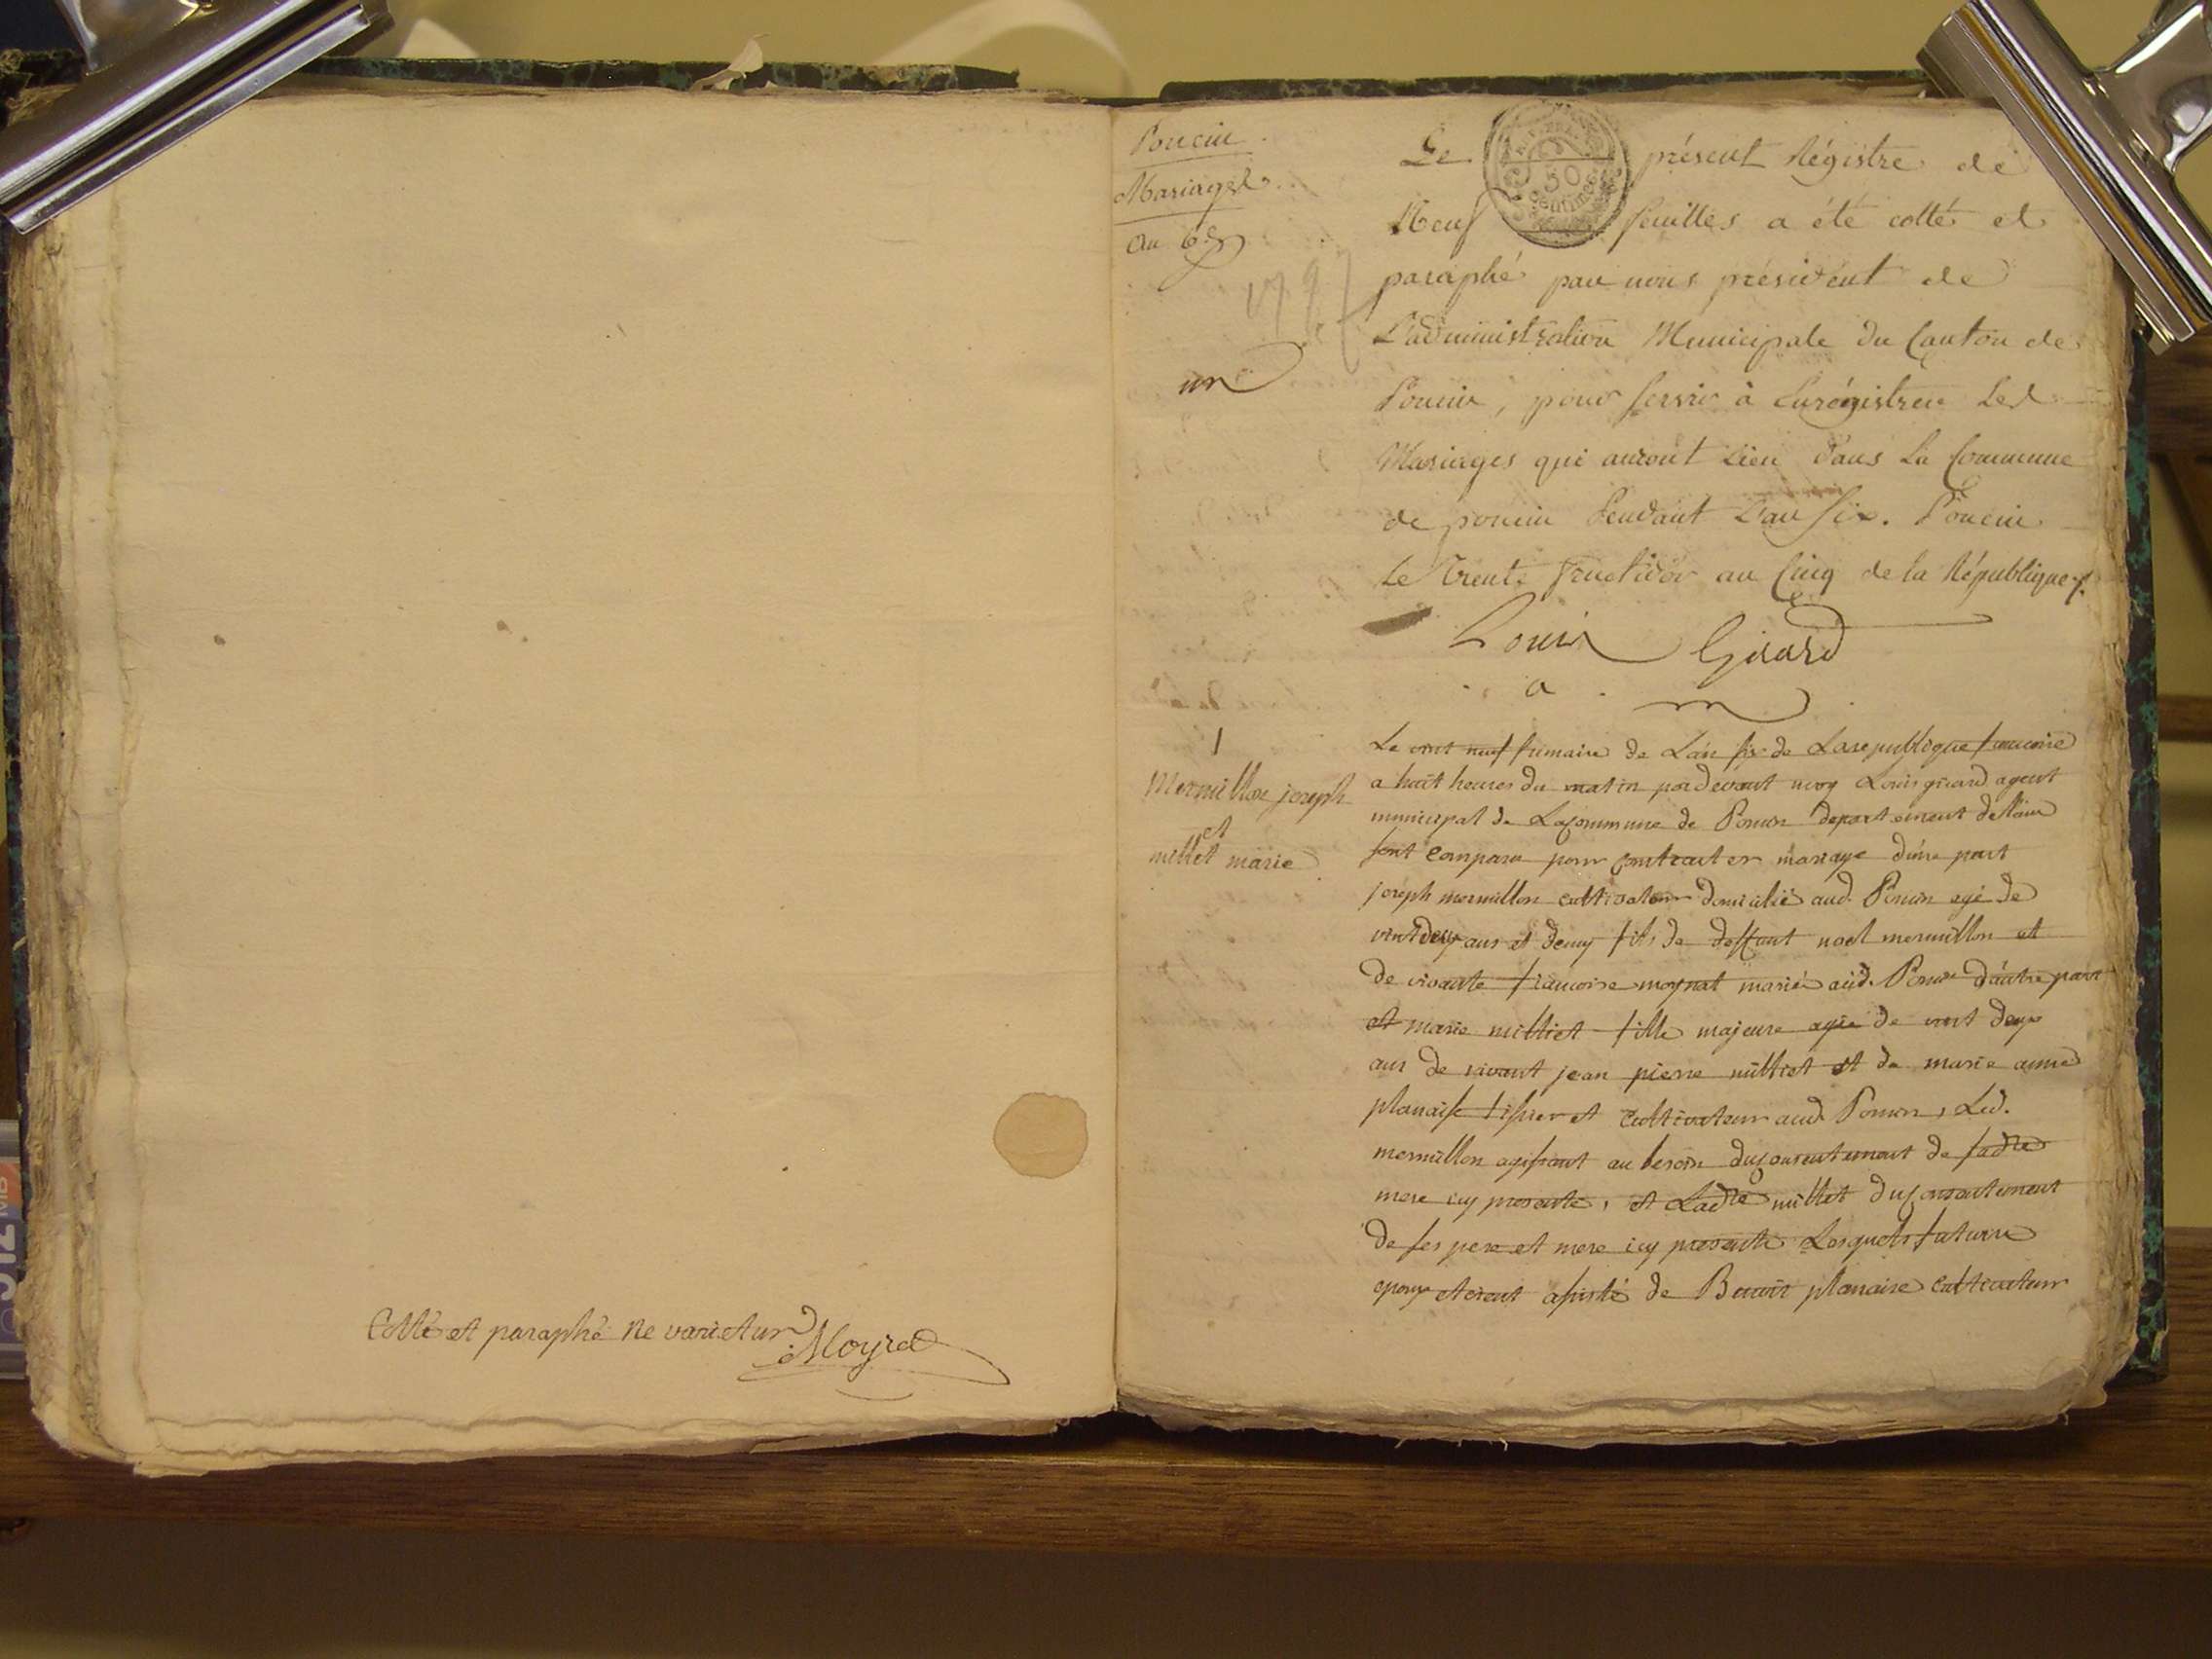 Cotté et paraphé ne varietur
Moyret
Poncin
Mariages
an 6e
1797
un
Le présent Régistre de
Neuf feuilles a été cotté et
paraphé par nous président de
L'administration Municipale du Canton de
Poncin, pour servir à Enrégistrer Les
Mariages qui auront Lieu dans La Commune
de poncin Pendant L'an Six. Poncin
Le Trente fructidor an Cinq de la République
Louis Girard
1
Mermillon joseph
et
milliet marie
Le vint neuf frimaire de L'an six de La republique francoise
a huit heures du matin pardevant moy Louis girard agent
municipal de La commune de Poncin departement de l'ain
sont comparu pour contracter mariage d'une part
joseph mermillon cultivateur domicilié aud. Poncin agé de
vint deux ans et demy fils de deffunt noel mermillon et
de vivante francoise moynat mariés aud. Poncin d'autre part
et marie milliet fille majeure agée de vint deux
ans de vivant jean pierre milliet et de marie anne
planaise tissier et cultivateur aud Poncin, Led.
mermillon agissant au besoin du consentement de sadte
mere icy presente, et Ladte milliet du consentement
de ses pere et mere icy presents Lesquels futurs
epoux etoient assisté de Benoit planaise cultivateur